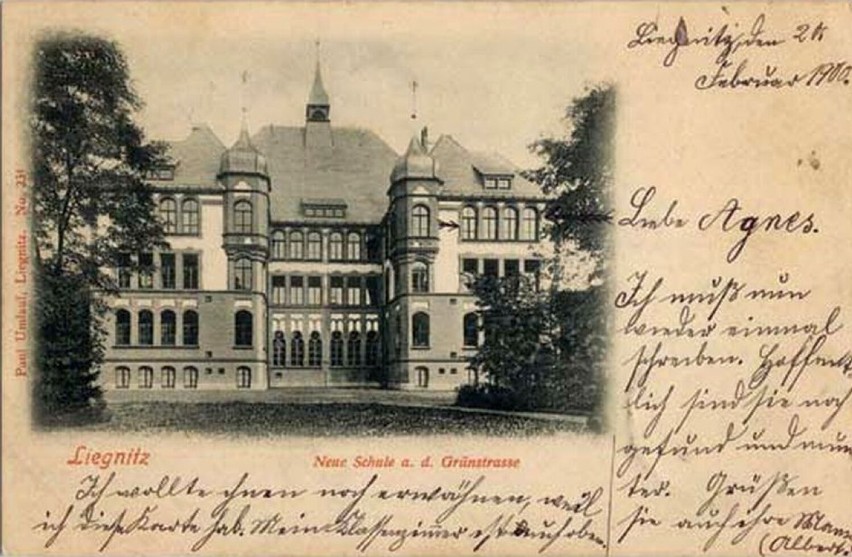 Liegnitz, den 2ten
Februar 1900.
Liebe Agnes.
Ich muß nun
wieder einmal
schreiben. Hoffent
lich sind sie noch
gesund und mun
ter. Grüßen
sie auch ihre Mam
(Albert
Paul Umlauf, Liegnitz. No. 231
Liegnitz
Neue Schule a. d. Grünstrasse
Ich wollte ihnen noch erwähnen, weil
ich diese Karte hab. Mein Klassenzimmer ist auch oben.